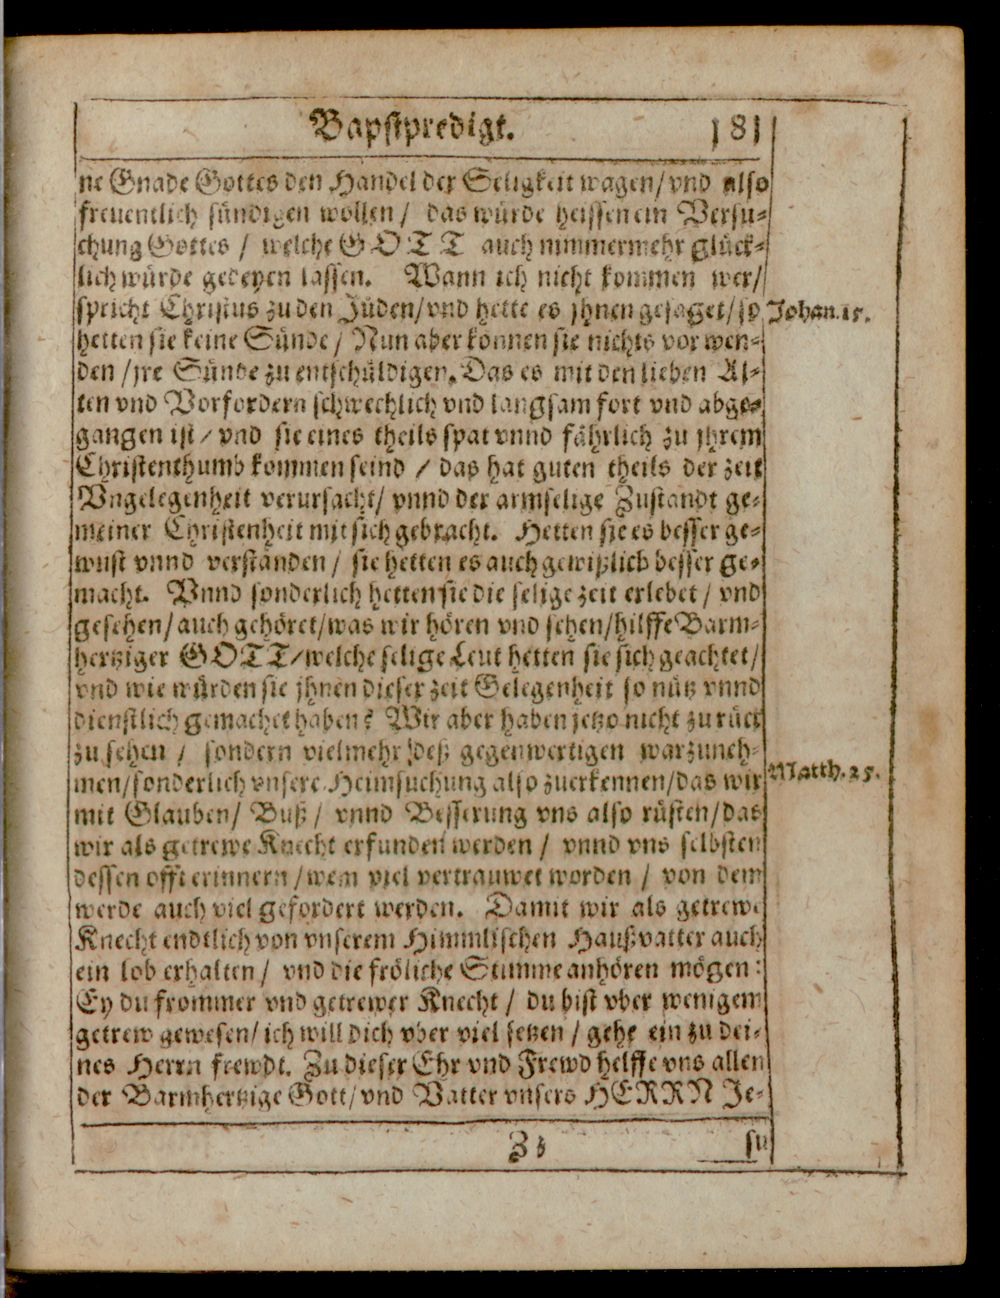 Bapstpredigt. 181
ne Gnade Gottes den Handel der Seligkeit wagen/ vnd also
freuentlich sündigen wollen / das würde heissen ein Versu-
chung Gottes / welche GOTT auch nimmermehr glück-
lich würde gedeyen lassen. Wann ich nicht kommen wer/
spricht Christus zu den Jüden/ vnd hette es jhnen gesaget/ so
Johan. 15.
hetten sie keine Sünde / Nun aber können sie nichts vorwen-
den / jre Sünde zu entschüldigen. Das es mit den lieben Al-
ten vnd Vorfordern schwechlich vnd langsam fort vnd abge-
gangen ist / vnd sie eines theils spat vnnd fährlich zu jhrem
Christenthumb kommen seind / das hat guten theils der zeit
Vngelegenheit verursacht/ vnnd der armselige Zustandt ge-
meiner Christenheit mit sich gebracht. Hetten sie es besser ge-
wust vnnd verstanden / sie hetten es auch gewißlich besser ge-
macht. Vnnd sonderlich hetten sie die selige zeit erlebet / vnd
gesehen/ auch gehöret/ was wir hören vnd sehen/ hilffe Barm-
hertziger GOTT/ welche selige Leut hetten sie sich geachtet/
vnd wie würden sie jhnen dieser zeit Gelegenheit so nütz vnnd
dienstlich gemachet haben? Wir aber haben jetzo nicht zu rück
zu sehen / sondern vielmehr deß gegenwertigen warzuneh-
men/ sonderlich vnsere Heimsuchung also zuerkennen/ das wir
Matth. 25.
mit Glauben/ Buß / vnnd Besserung vns also rüsten/ das
wir als getrewe Knecht erfunden werden / vnnd vns selbsten
dessen offt erinnern / wem viel vertrauwet worden / von dem
werde auch viel gefordert werden. Damit wir als getrewe
Knecht endtlich von vnserem Himmlischen Haußvatter auch
ein lob erhalten / vnd die fröliche Stimme anhören mögen:
Ey du frommer vnd getrewer Knecht / du bist vber wenigem
getrew gewesen/ ich will dich vber viel setzen / gehe ein zu dei-
nes Herrn frewdt. Zu dieser Ehr vnd Frewd helffe vns allen
der Barmhertzige Gott/ vnd Vatter vnsers HERRN Je-
Z 3 su